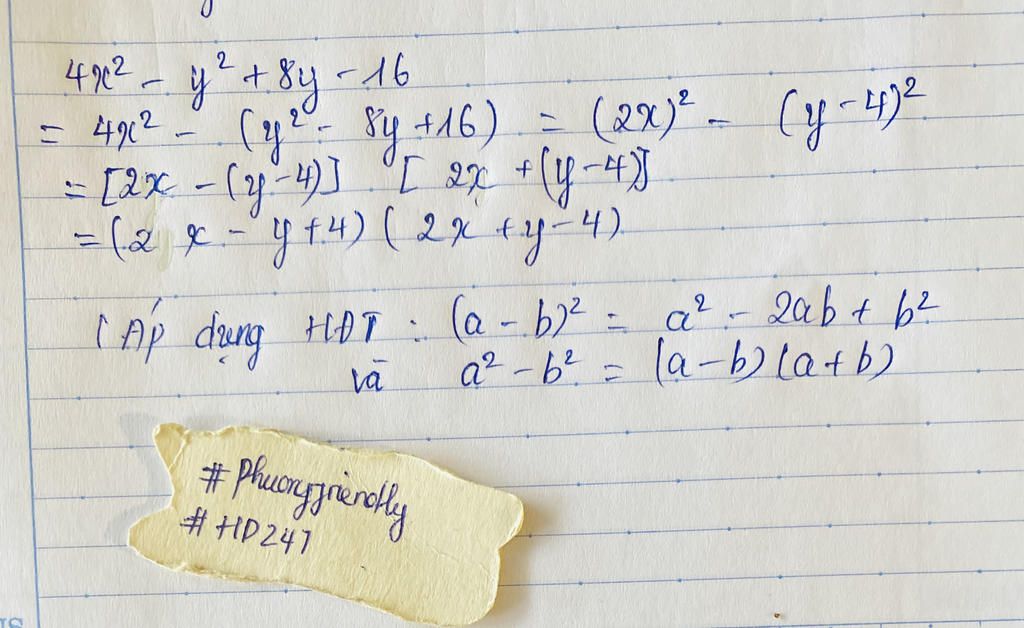 4x² - y² + 8y - 16
= 4x² - (y² - 8y + 16) = (2x)² - (y - 4)²
= [2x - (y - 4)] [2x + (y - 4)]
= (2x - y + 4) (2x + y - 4)
(Áp dụng HĐT : (a - b)² = a² - 2ab + b²
và a² - b² = (a - b) (a + b)
# HD247